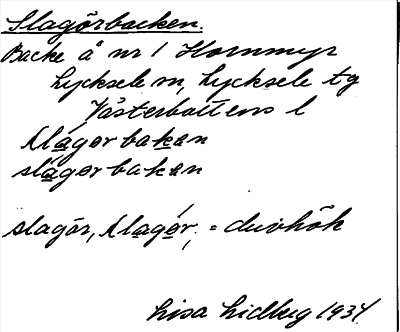 Slagörbacken.
Backe å nr 1 Hornmyr
Lycksele sn, Lycksele tg
Västerbottens l
slagorbakan
slagorbakan
slagör, slagør, = duvhök
Lisa Lidberg 1934